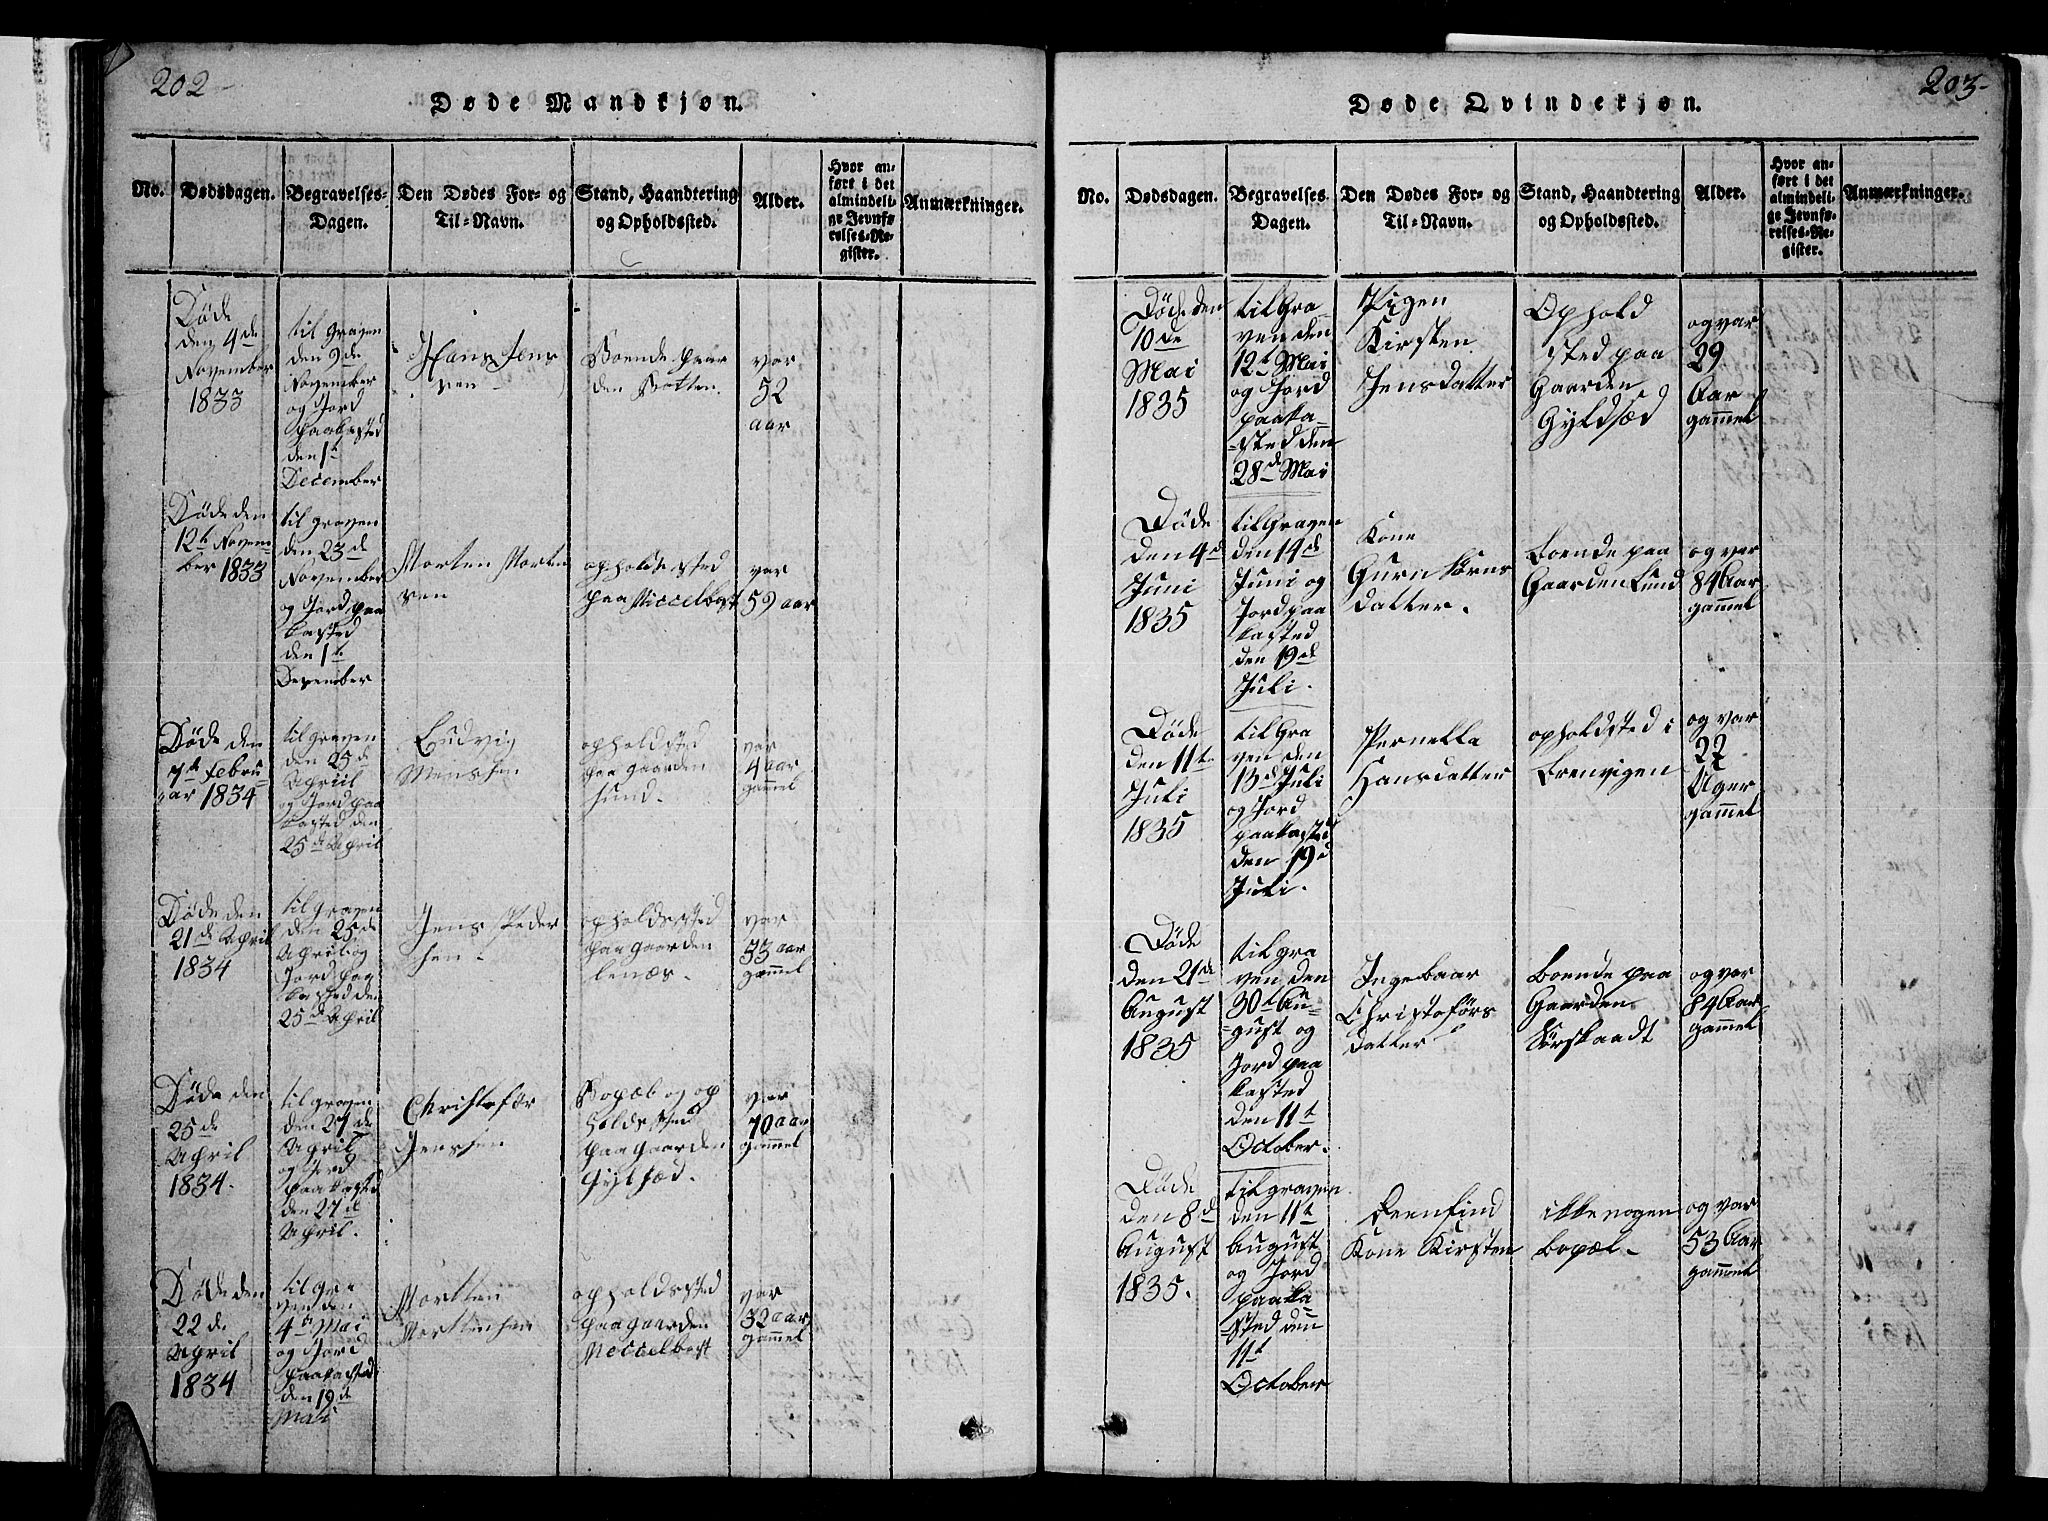 202
Døde Mandkjøn.
No.
Dødsdagen.
Begravelses-
Dagen.
Den Dødes For- og
Til-Navn.
Stand, Haandtering
og Opholdssted.
Alder.
Hvor an-
ført i det
almindeli-
ge Jevnfø-
relses-Re-
gister.
Anmærkninger.
Døde
den 4de
November
1833
til graven
den 9de
November
og Jord
paakasted
den 1te
December
Hans Jens
sen
Boende paa
den Botten
var
52
aar
Døde den
12te Novem-
ber 1833
til graven
den 23de
November
og Jord paa
kasted
den 1te
Desember
Morten Morten
sen
opholdssted
paa Miccelbost
var
59 aar
Døde den
7te Febru
ar 1834
til graven
den 25de
April
og Jord paa
kasted den
25de April
Ludvig
opholdsted
paa gaarden
sund.
var
4 aar
gammel
Døde den
21de April
1834
til graven
den 25de
April og
Jord paa
kasted den
25de April
Jens Peder
sen
opholdssted
paa gaarden
lenæs.
var
33 aar
gammel
Døde den
25de
April
1834.
til graven
den 27de
April
og Jord
paakasted
den 27de
April.
Christofør
Jenssen
Bopæl og op
holdssted
paa gaarden
Gylsæd.
var
70 aar
gammel
Døde den
22de
April
1834
til gra
ven den
4de Mai
og Jord
paakasted
den 19de
Mai
Morten
Mortensen
opholdssted
paa gaarden
Meccelbost
var
32 aar
gammel
203
Døde Qvindekjøn.
No.
Dødsdagen.
Begravelses
Dagen.
Den Dødes For- og
Til-Navn.
Stand, Haandtering
og Opholdssted.
Alder.
Hvor an-
ført i det
almindeli-
ge Jevnfø-
relses-Re-
gister.
Anmærkninger.
Døde den
10de
Mai
1835
til Gra
ven den
12te Mai
og Jord
paaka
sted den
28de Mai
Pigen
Kirsten
Jensdatter
Ophold
sted paa
Gaarden
Gyldsæd
og var
29
Aar
gammel
Døde
den 4de
Juni
1835
til Graven
den 14de
Juni og
Jord paa
kasted
den 19de
Juli.
Kone
Gurn Sørns
datter.
Boende paa
Gaarden Lund
og var
84 Aar
gammel
Døde
den 11te
Juli
1835
til Gra
ven den
13de Juli
og Jord
paakasted
den 19d
Juli.
Pernella
Hansdatter
opholdsted i
Brenvigen
og var
22
Uger
gammel
Døde
den 21de
August
1835
til gra
ven den
30te Au-
gust og
Jord paa
kasted
den 11te
October.
Ingebaar
Christoførs
datter
Boende paa
Gaarden
Sørskaadt
og var
84 Aar
gammel
Døde
den 8de
August
1835.
til graven
den 11te
August
og Jord
paaka
sted den
11te
October
Kone Kirsten
ikke nogen
bopæl
og var
53 Aar
gammel